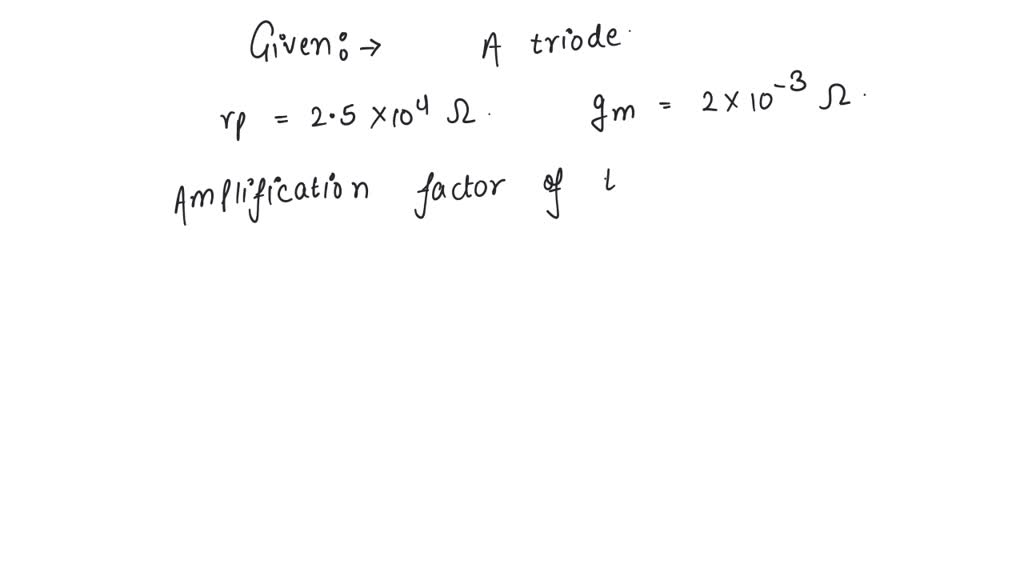 Given:→ A triode.
rp = 2.5 ×10⁴ Ω. gm = 2 × 10⁻³ Ω.
Amplification factor of t